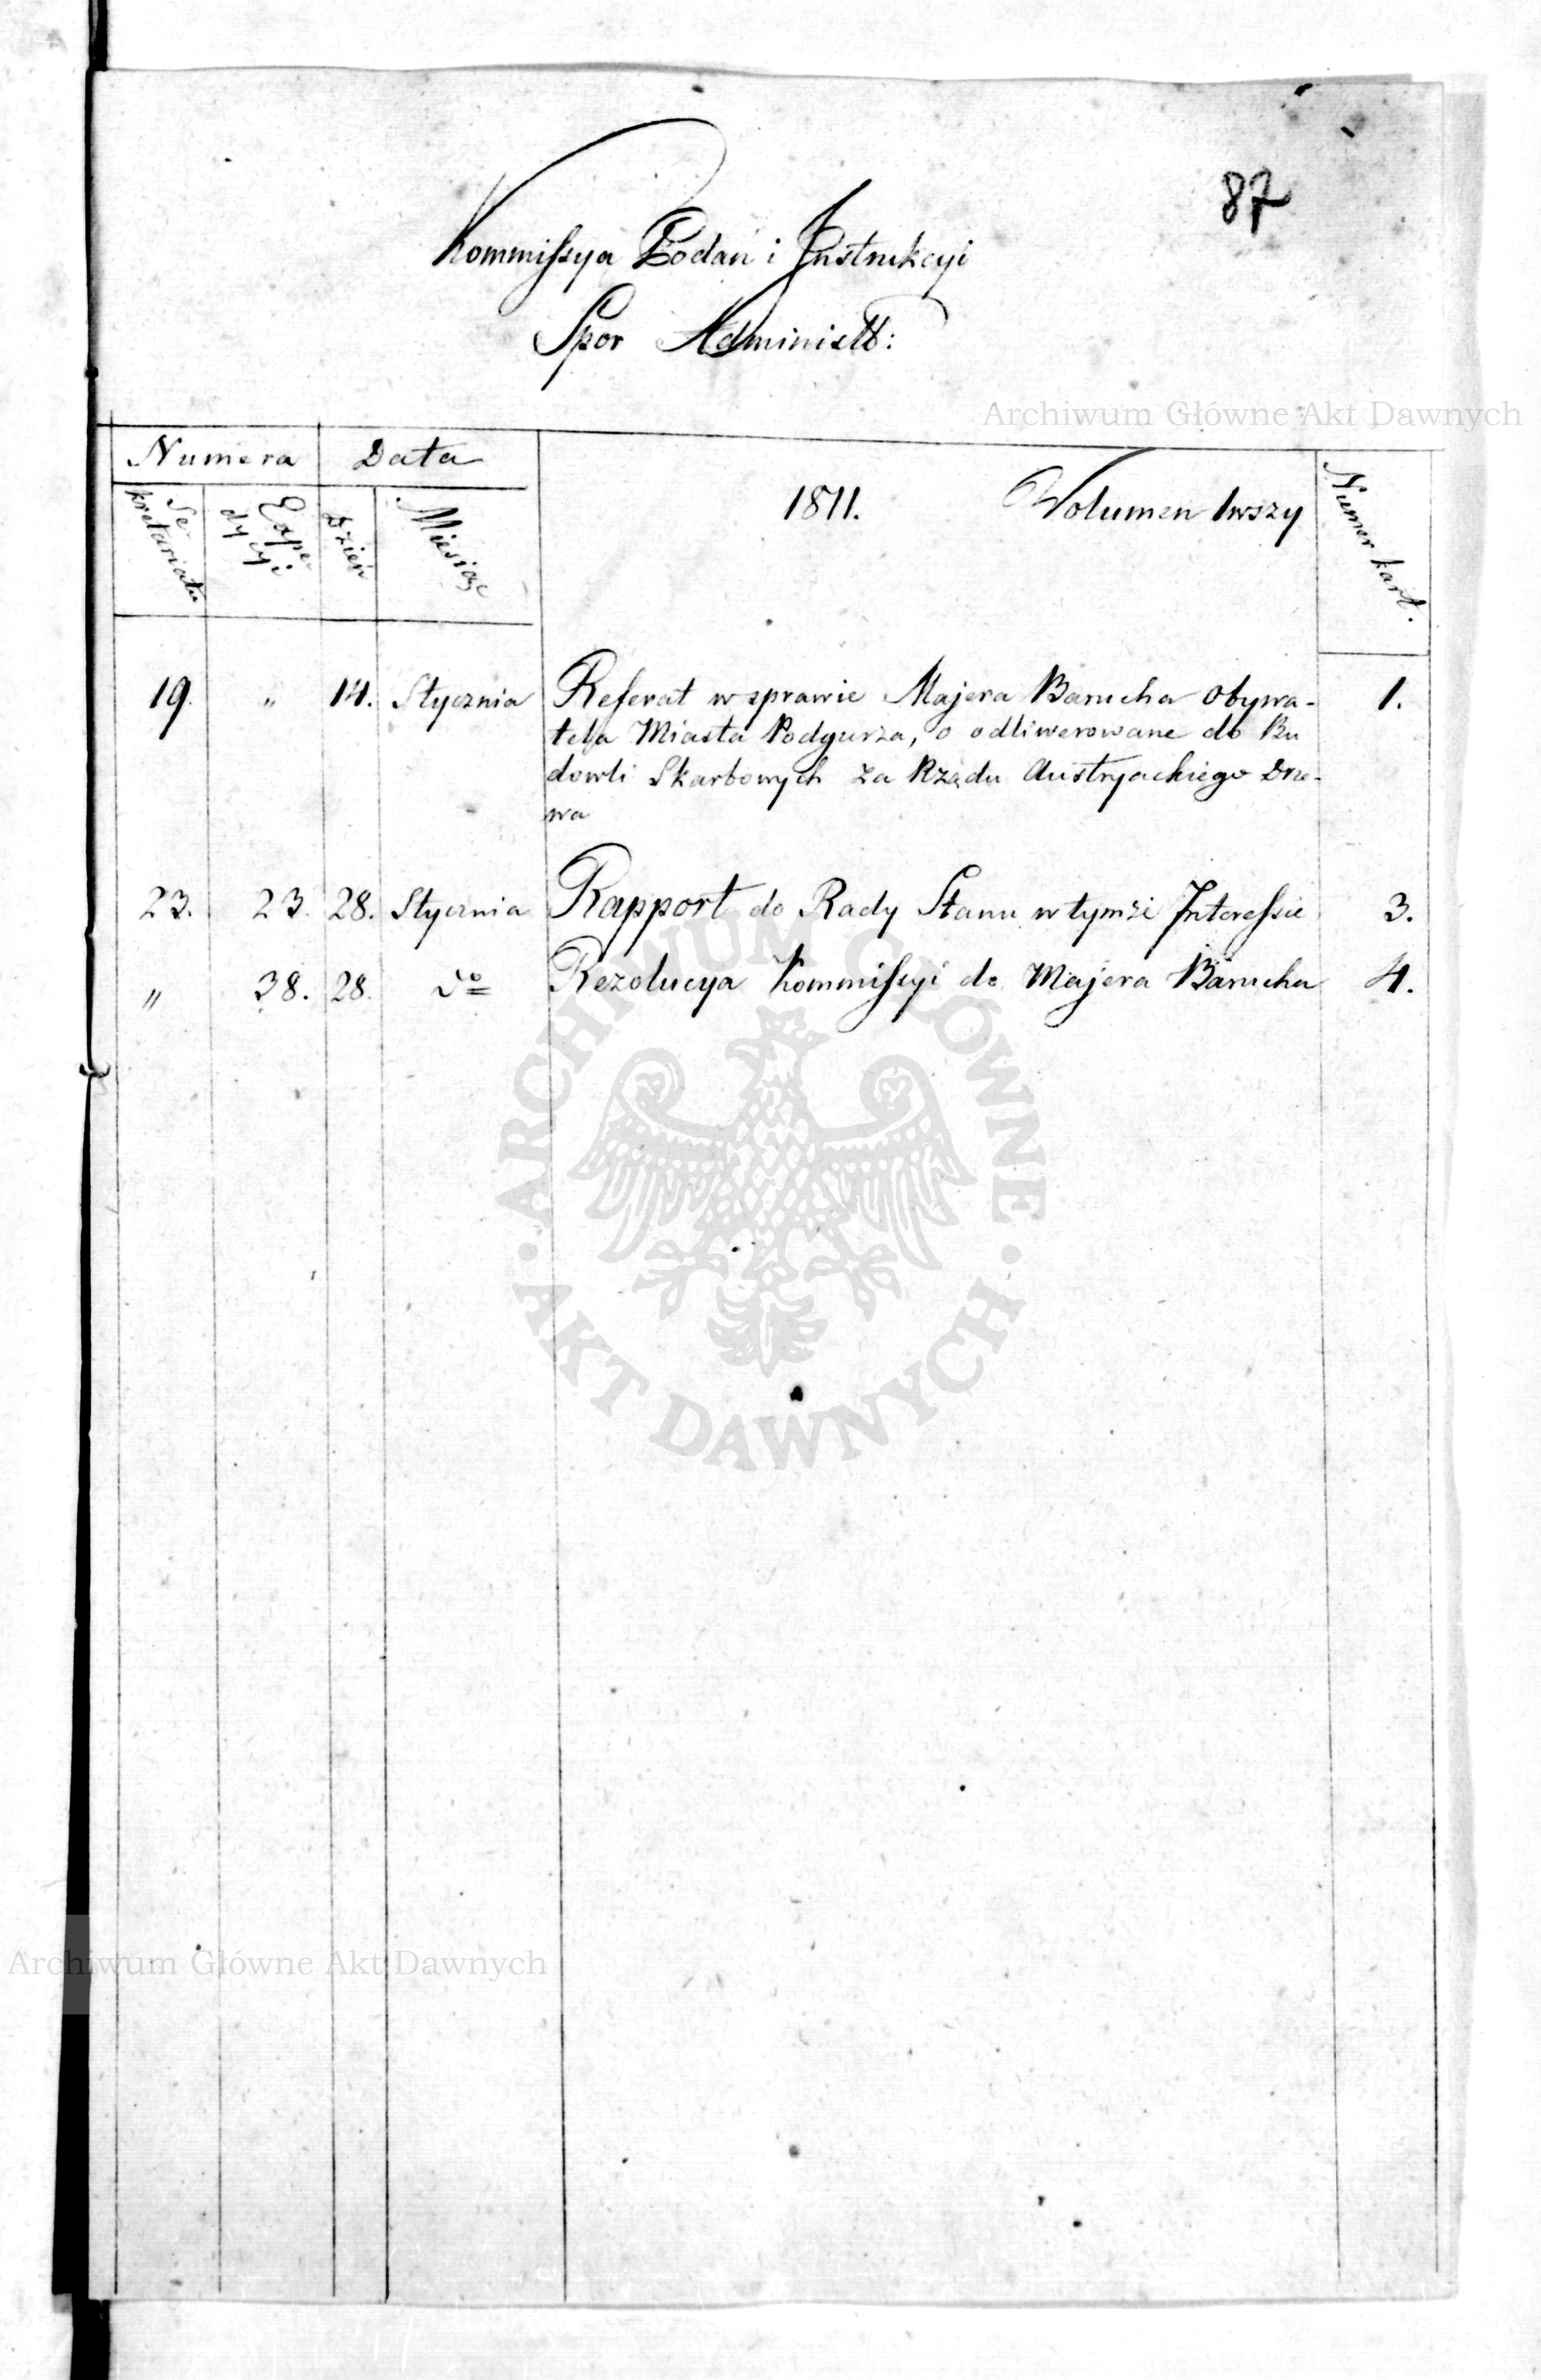 87
Kommissya Podań i Instrukcyi
Spor Administr:
Archiwum Główne Akt Dawnych
Numera Data
1811. Wolumen 1wszy
Se-
kretariatu
Expe-
dycyi
Dzień
Miesiąc
Numer kart.
19. " 14. Stycznia Referat w sprawie Majera Barucha Obywa-
tela Miasta Podgurza, o odliwerowane do Bu
dowli Skarbowych za Rządu Austryackiego Drze-
wa
1.
23. 23. 28. Stycznia Rapport do Rady Stanu w tymże Interessie 3.
" 38. 28. do Rezolucya Kommissyi do Majera Barucha 4.
ARCHIWUM GŁÓWNE
AKT DAWNYCH
Archiwum Główne Akt Dawnych